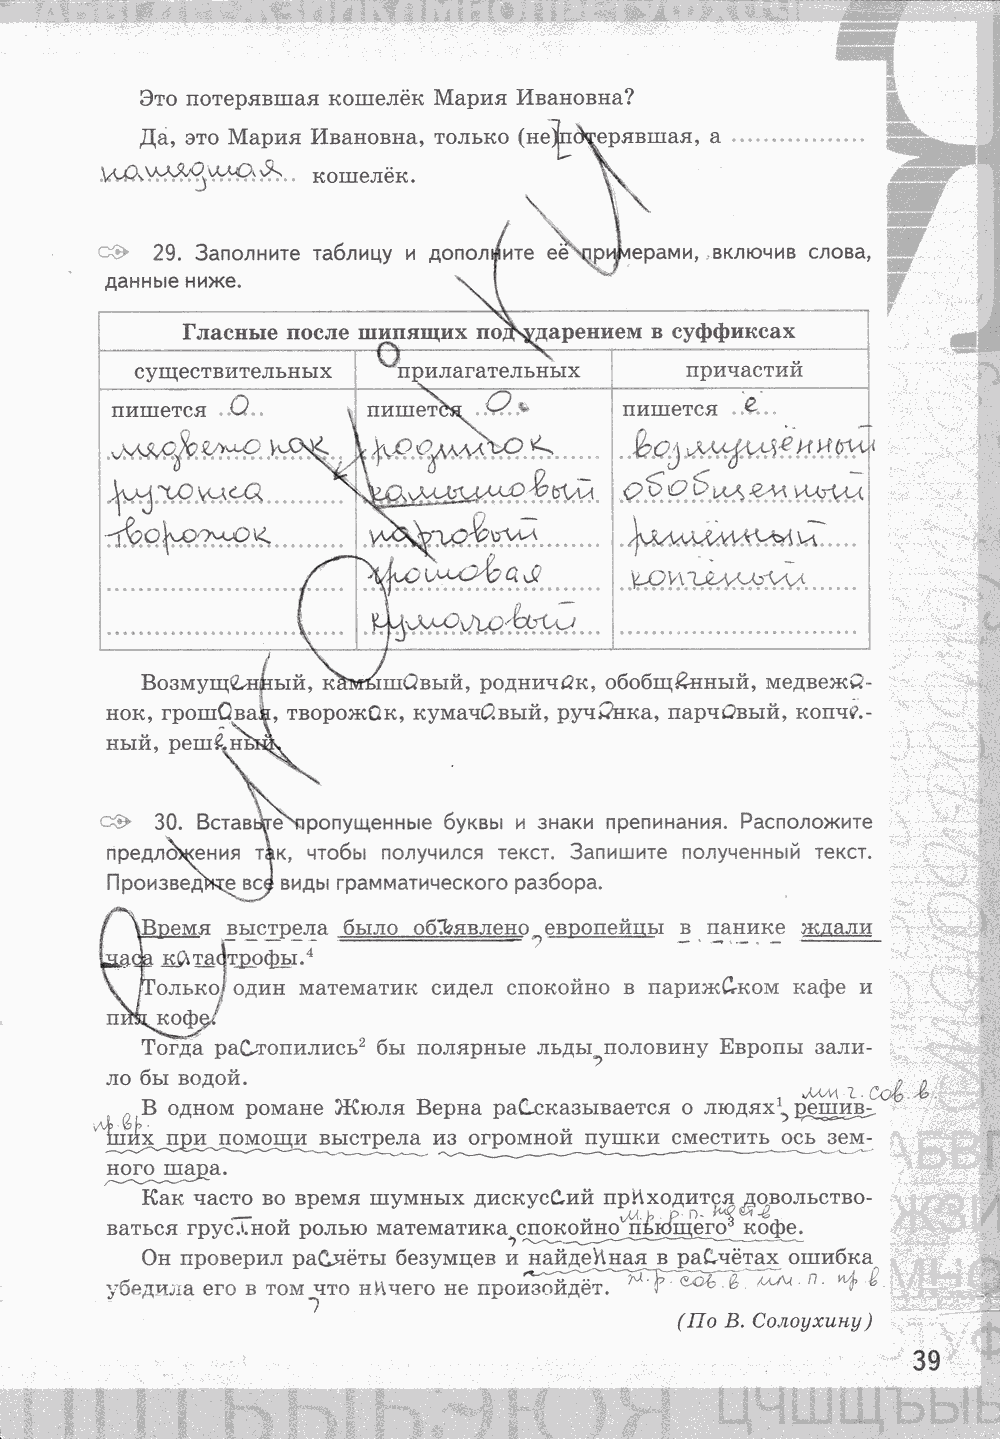 Это потерявшая кошелёк Мария Ивановна?
Да, это Мария Ивановна, только (не) потерявшая, а
нашедшая кошелёк.
29. Заполните таблицу и дополните её примерами, включив слова,
данные ниже.
Гласные после шипящих под ударением в суффиксах
существительных прилагательных причастий
пишется О пишется О пишется ё
медвежонок родничок возмущённый
ручонка камышовый обобщенный
творожок парчовый решённый
грошовая копчёный
кумачовый
Возмущенный, камышОвый, родничок, обобщённый, медвежо-
нок, грошОвая, творожок, кумачОвый, ручОнка, парчОвый, копчё-
ный, решёный.
30. Вставьте пропущенные буквы и знаки препинания. Расположите
предложения так, чтобы получился текст. Запишите полученный текст.
Произведите все виды грамматического разбора.
Время выстрела было объявлено, европейцы в панике ждали
часа катастрофы.4
Только один математик сидел спокойно в парижСком кафе и
пил кофе.
Тогда раСтопились2 бы полярные льды, половину Европы зали-
ло бы водой.
мн.ч. сов. в.
В одном романе Жюля Верна раСсказывается о людях1, решив-
пр.вр.
ших при помощи выстрела из огромной пушки сместить ось зем-
ного шара.
Как часто во время шумных дискусСий прИходится довольство-
м.р. р.п.
ваться грустной ролью математика, спокойно пьющего3 кофе.
Он проверил раСчёты безумцев и найдеНная в раСчётах ошибка
убедила его в том, что нИчего не произойдёт. ж.р. сов.в. им.п. пр.в
(По В. Солоухину)
39
УКРОКИ